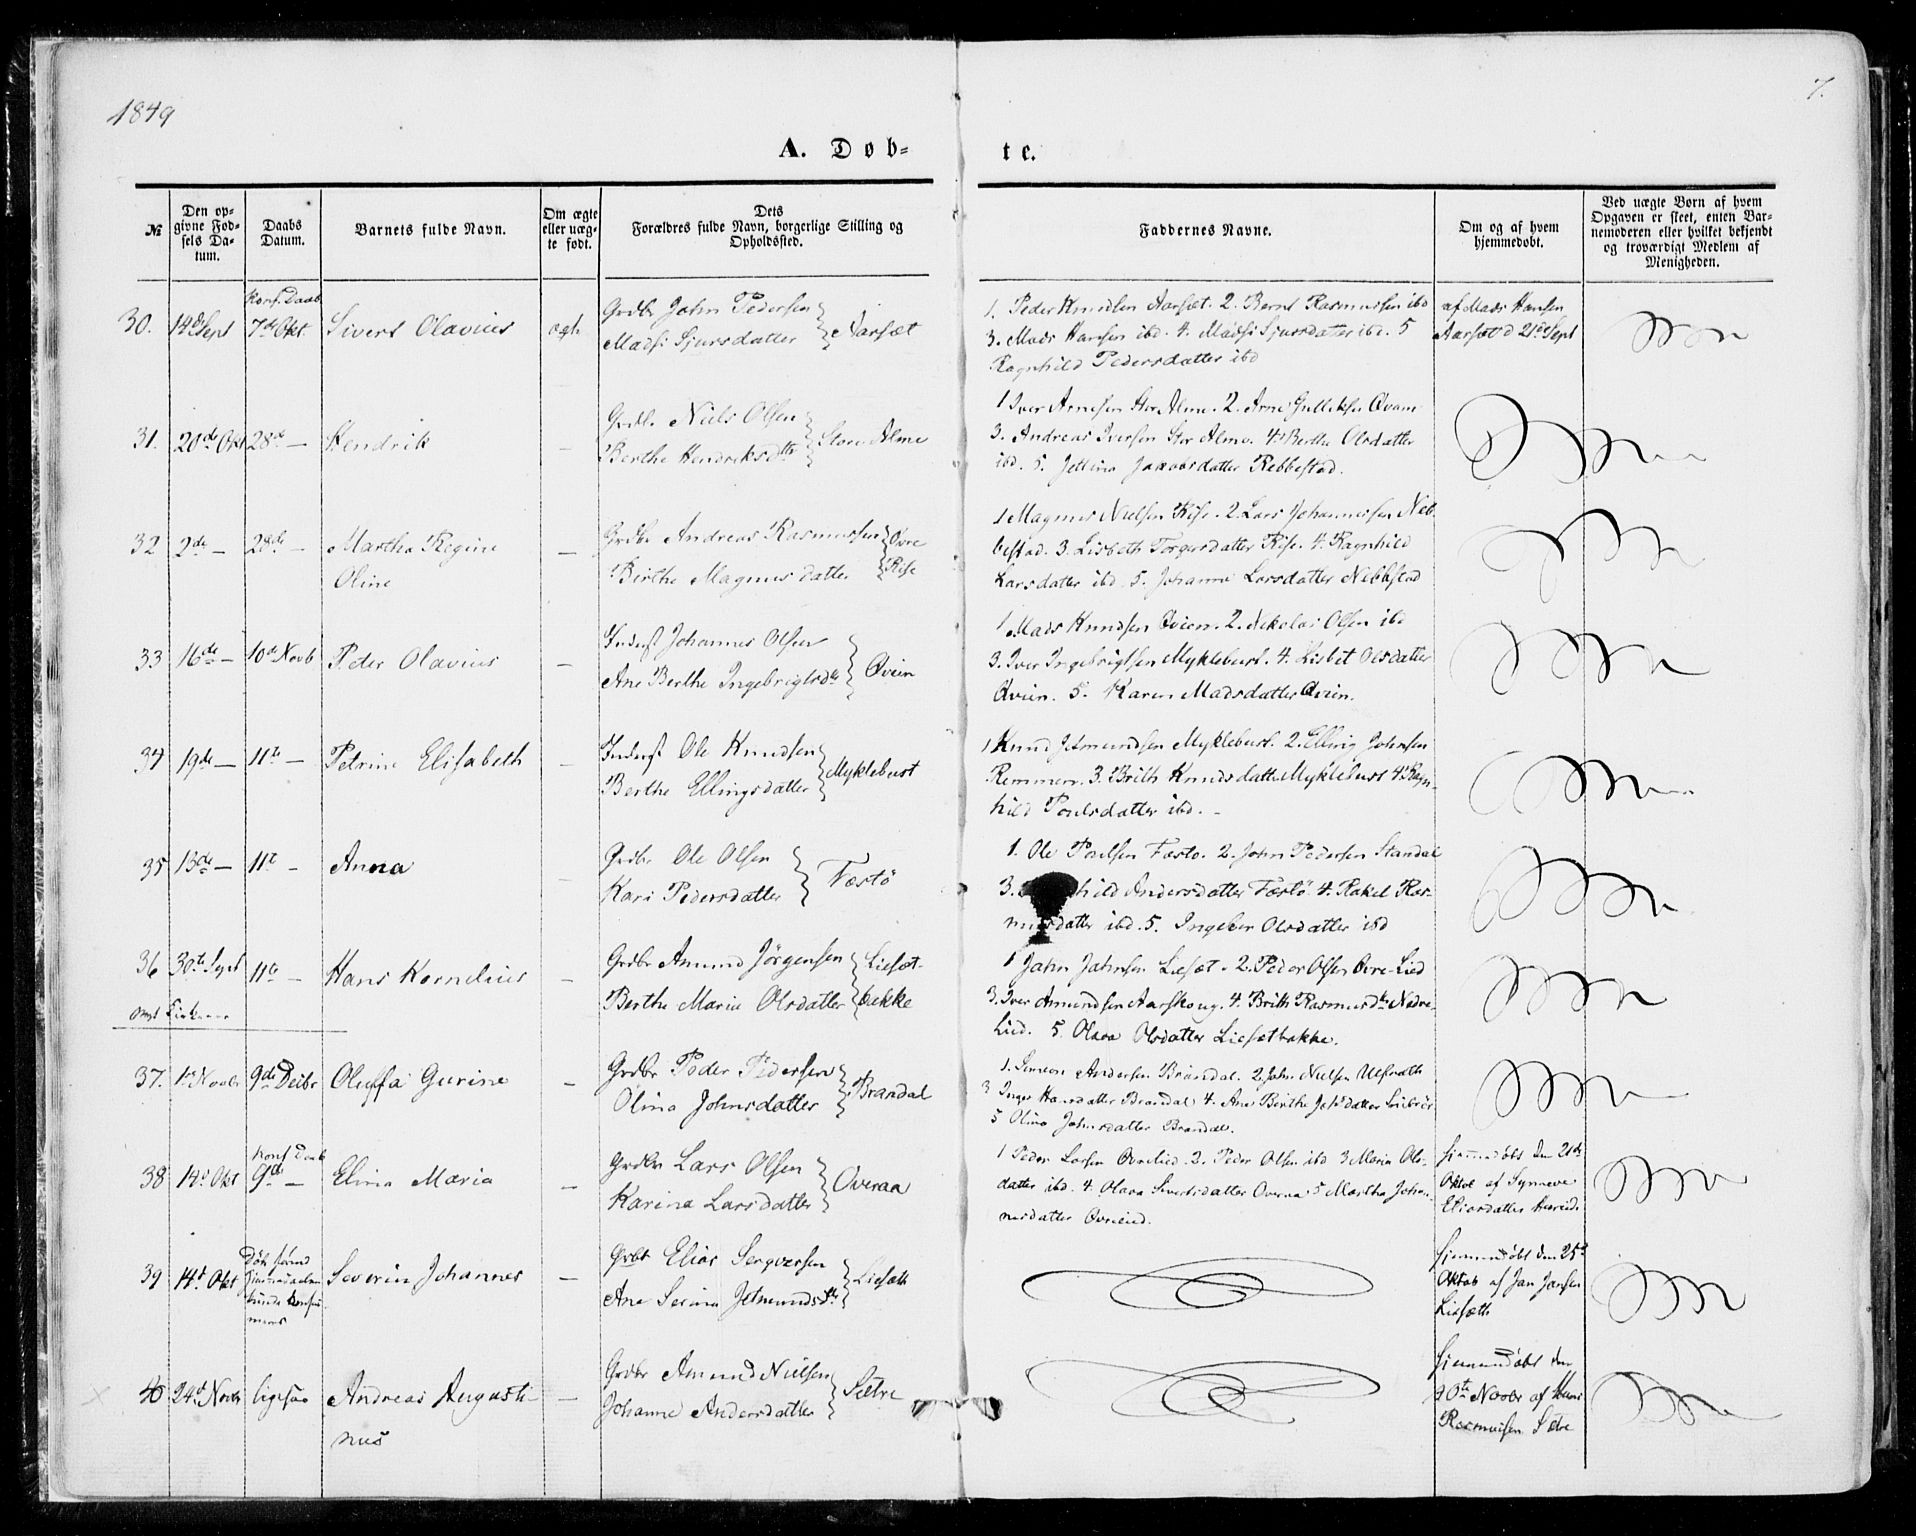 1849
7.
A. Døb-
te.
№
Den op-
givne Fød-
sels Da-
tum.
Daabs
Datum.
Barnets fulde Navn.
Om ægte
eller uæg-
te født.
Dets
Forældres fulde Navn, borgerlige Stilling og
Opholdssted.
Faddernes Navne.
Om og af hvem
hjemmedøbt.
Ved uægte Børn af hvem
Opgaven er skeet, enten Bar-
nemoderen eller hvilket bekjendt
og troværdigt Medlem af
Menigheden.
Konf. Daab
30. 14de Sept 7de Okt. Sivert Olavius ægt.
Grdbr John Pedersen
Madsi Sjursdatter Aarsæt
1. Peder Knudsen Aarsæt. 2. Bernt Rasmussen ibd
3. Mads Hansen ibd. 4. Madsi Sjursdatter ibd. 5
Ragnhild Pedersdatter ibd
af Mads Hansen
Aarsæt d 21de Sept
31. 20de Okt 28de — Hendrik —
Grdbr Niels Olsen
Berthe Hendriksdtr Store Alme
1 Iver Arnesen Stor Alme. 2. Arne Gulliksen Qvam
3. Andreas Iversen Stor Alme. 4. Berthe Olsdatter
ibd. 5. Jettine Jakobsdatter Rebbestad.
32 2de — 28de — Martha Regine
Oline —
Grdbr Andreas Rasmussen Øvre
Birthe Magnusdatter Rise
1 Magnus Nielsen Rise. 2. Lars Johannessen Neb-
bestad. 3. Lisbeth Torgersdatter Rise. 4. Ragnhild
Larsdatter ibd. 5. Johanne Larsdatter Nebbestad
33 16de — 10de Novb Peter Olavius —
Inderst Johannes Olsen
Ane Berthe Ingebrigtsdtr Qvien
1 Mads Knudsen Qvien. 2. Nikolai Olsen ibd
3. Iver Ingebrigtsen Myklebust. 4. Lisbet Olsdatter
Qvien. 5. Karen Madsdatter Qvien.
34 19de — 11te — Petrine Elisabeth —
Inderst Ole Knudsen
Berthe Ellingsdatter Myklebust
1 Knud Jetmundsen Myklebust. 2. Elling Johnsen
Remmen. 3. Brith Knudsdatter Myklebust 4. Ragn-
hild Poulsdatter ibd. -
35 13de — 11te - Anna —
Grdbr Ole Olsen
Kari Pedersdatter Festö
1. Ole Poulsen Festö. 2. John Pedersen Standal
3. hild Andersdatter Festö 4. Rakel Ras-
musdatter ibd. 5. Ingeber Olsdatter ibd
36 30te Sept 11te — Hans Kornelius —
Grdbr Amund Jörgensen Liesæt-
Berthe Maria Olsdatter bakke
1 John Johnsen Liesæt. 2. Peder Olsen Øvre-Lied
3. Iver Amundsen Aarskoug. 4. Brith Rasmusdtr Nedre-
Lied. 5. Olava Olsdatter Liesætbakke.
37. 1te Novbr 9de Decbr Oluffa Gurine —
Grdbr Peder Pedersen
Olina Johnsdatter Brandal
1. Simeon Andersen Brandal. 2. John Nielsen Ulfsnæth
3 Inger Hansdatter Brandal 4. Ane Birthe datter
5 Olina Johnsdatter Brandal.
38 14de Okt Konf Daab
9de — Elina Maria —
Grdbr Lars Olsen
Karina Larsdatter Overaa
1 Peder Larsen Øvrelied. 2. Peder Olsen ibd 3 Maria Ols-
datter ibd. 4. Olava Sivertsdatter Overaa 5 Martha Johan-
nesdatter Øvrelied.
hjemmedöbt den 21de
Oktbr af Synneve
Eliasdatter
39 14d Okt
Död förend
hjemmedaaben
kunde konfir-
meres
Severin Johannes —
Grdbr Elias Sergversen
Ane Serina Jetmundsdtr Liesæth
hjemmedöbt den 25de
Oktob af Jan Jansen
Liesæth
40 24d Novbr ligesaa Andreas Augusti-
nus —
Grdbr Amund Nielsen
Johanne Andersdatter Sætre
hjemmedöbt den
Novbr af
Rasmussen Sætre